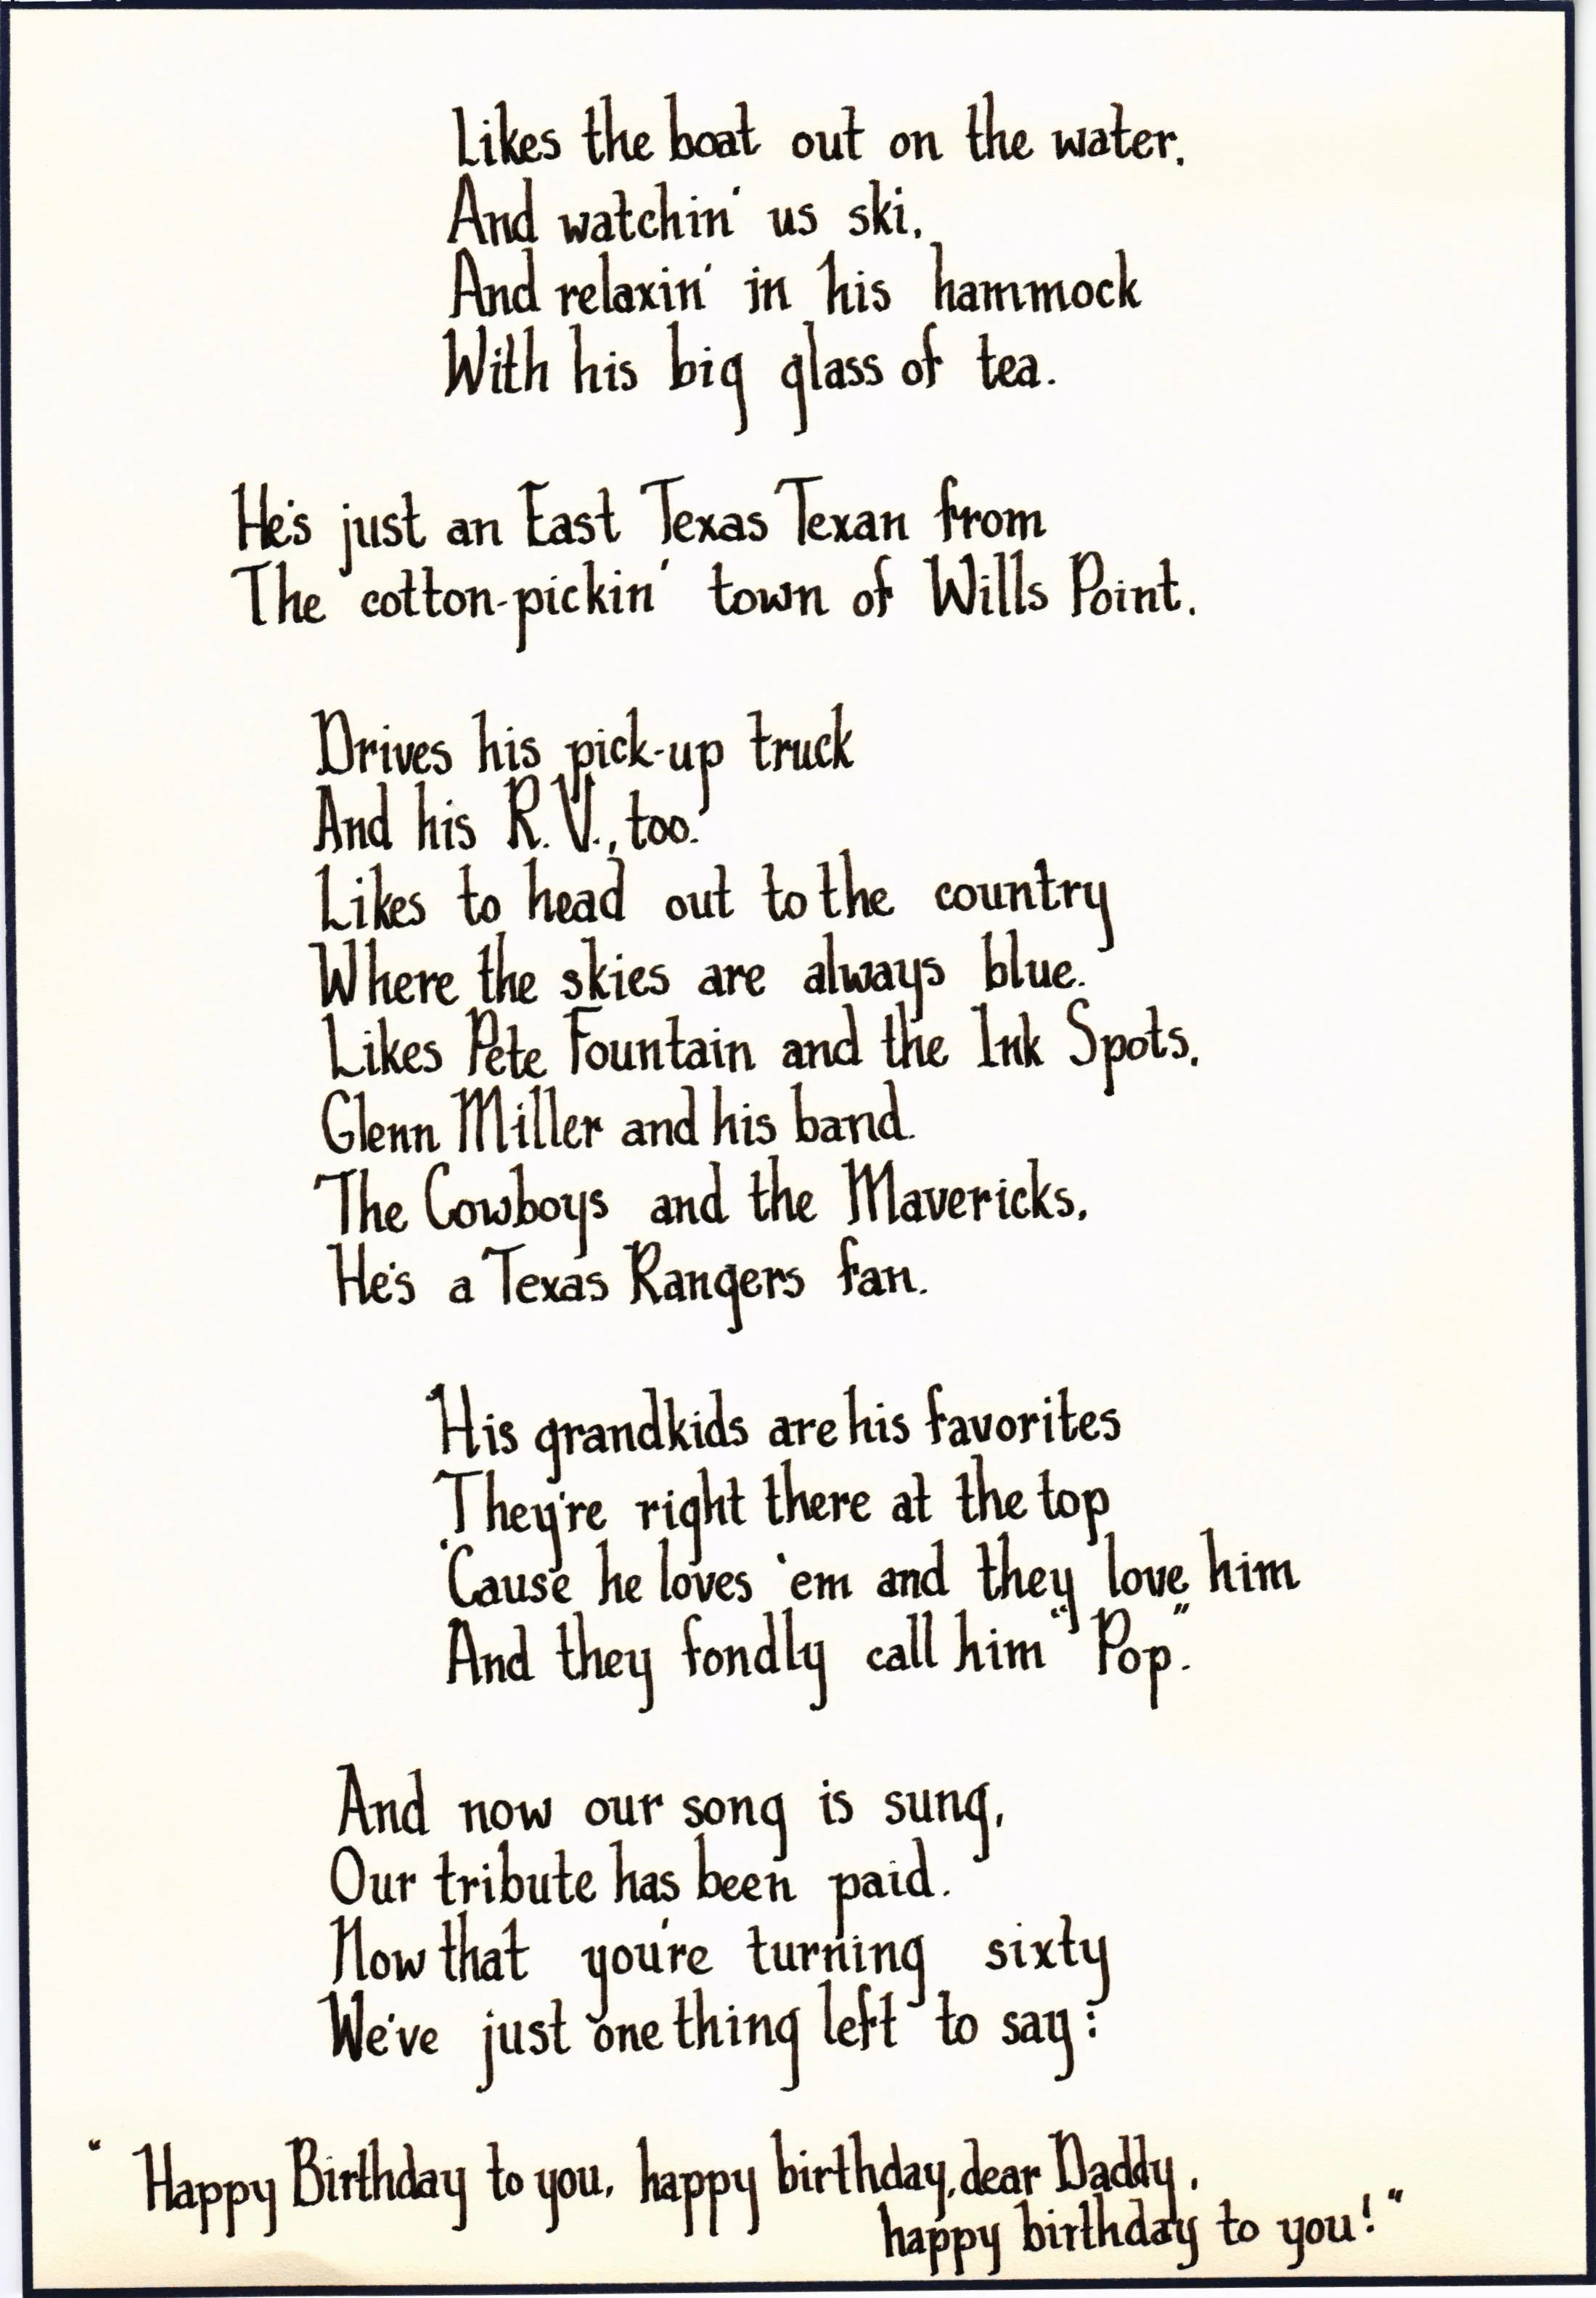 Likes the boat out on the water,
And watchin' us ski,
And relaxin' in his hammock
With his big glass of tea.
He's just an East Texas Texan from
The cotton-pickin' town of Wills Point.
Drives his pick-up truck
And his R.V., too.
Likes to head out to the country
Where the skies are always blue.
Likes Pete Fountain and the Ink Spots,
Glenn Miller and his band.
The Cowboys and the Mavericks,
He's a Texas Rangers fan.
His grandkids are his favorites
They're right there at the top
'Cause he loves 'em and they love him
And they fondly call him "Pop."
And now our song is sung,
Our tribute has been paid.
Now that you're turning sixty
We've just one thing left to say:
"Happy Birthday to you, happy birthday, dear Daddy,
happy birthday to you!"